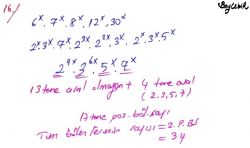 Baglebik
16/
6ˣ . 7ˣ . 8ˣ . 12ˣ . 30ˣ
2ˣ . 3ˣ . 7ˣ . 2³ˣ . 2²ˣ . 3ˣ . 2ˣ . 3ˣ . 5ˣ
2⁹ˣ . 3⁶ˣ . 5ˣ . 7ˣ
13 tane asal olmayan + 4 tane asal
(2, 3, 5, 7)
17 tane poz. böl. sayı
Tüm bölenlerinin sayısı = 2. P.BS
= 34